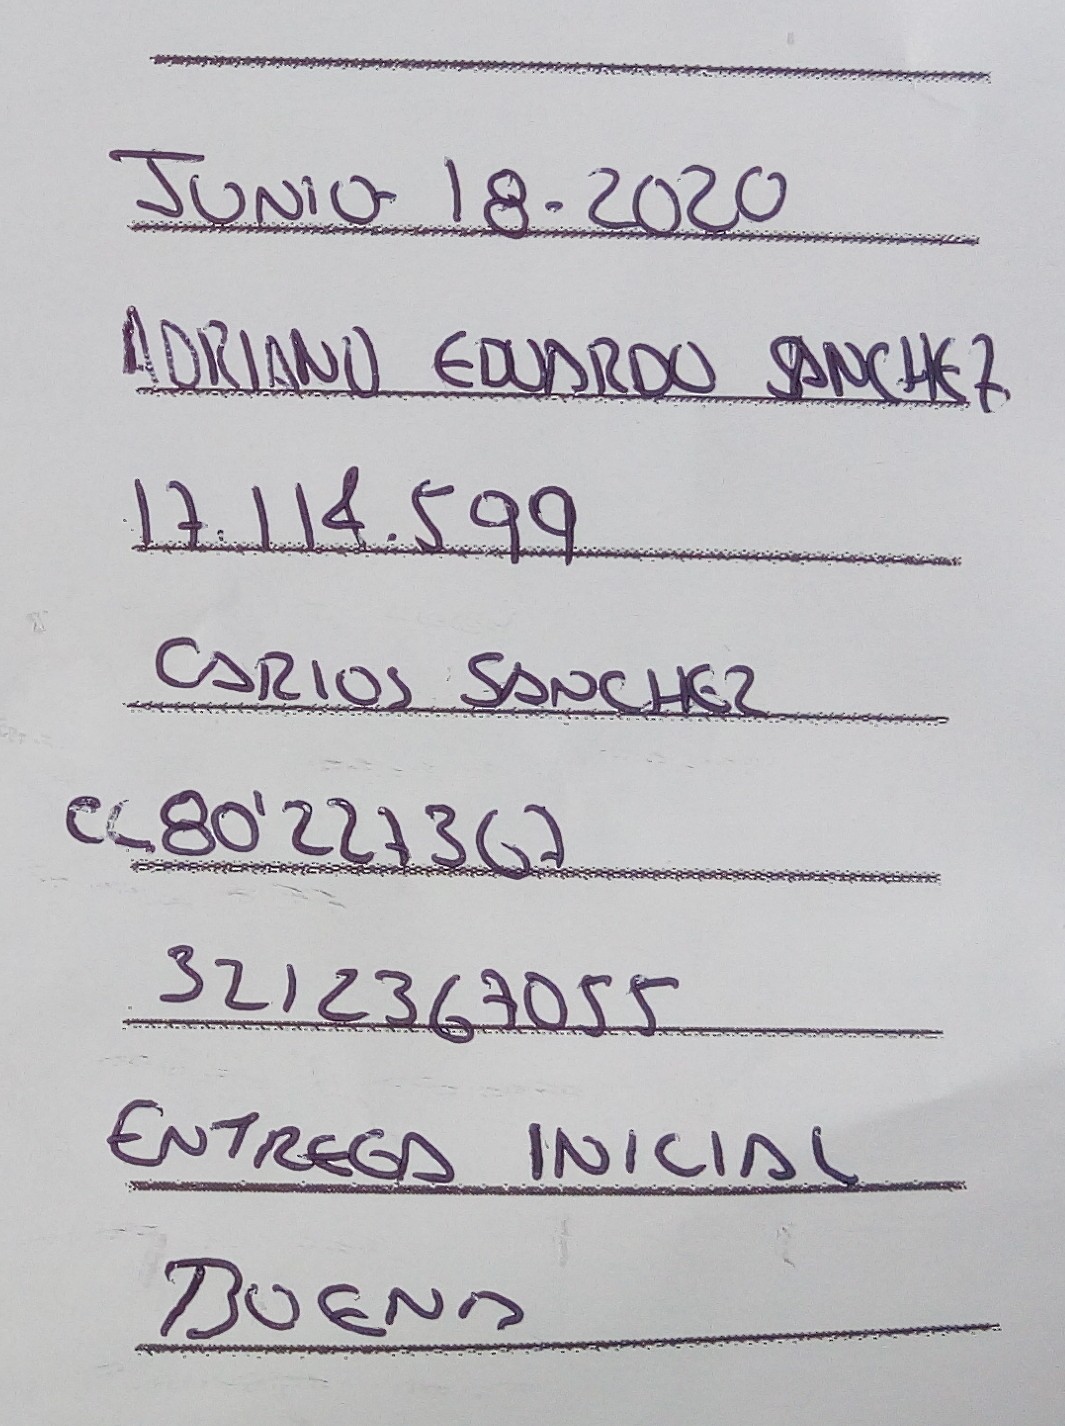 JUNIO 18-2020
ADRIANO EDUARDO SANCHEZ
17.114.599
CARLOS SANCHEZ
CC 80'227367
3212367055
ENTREGA INICIAL
BUENA